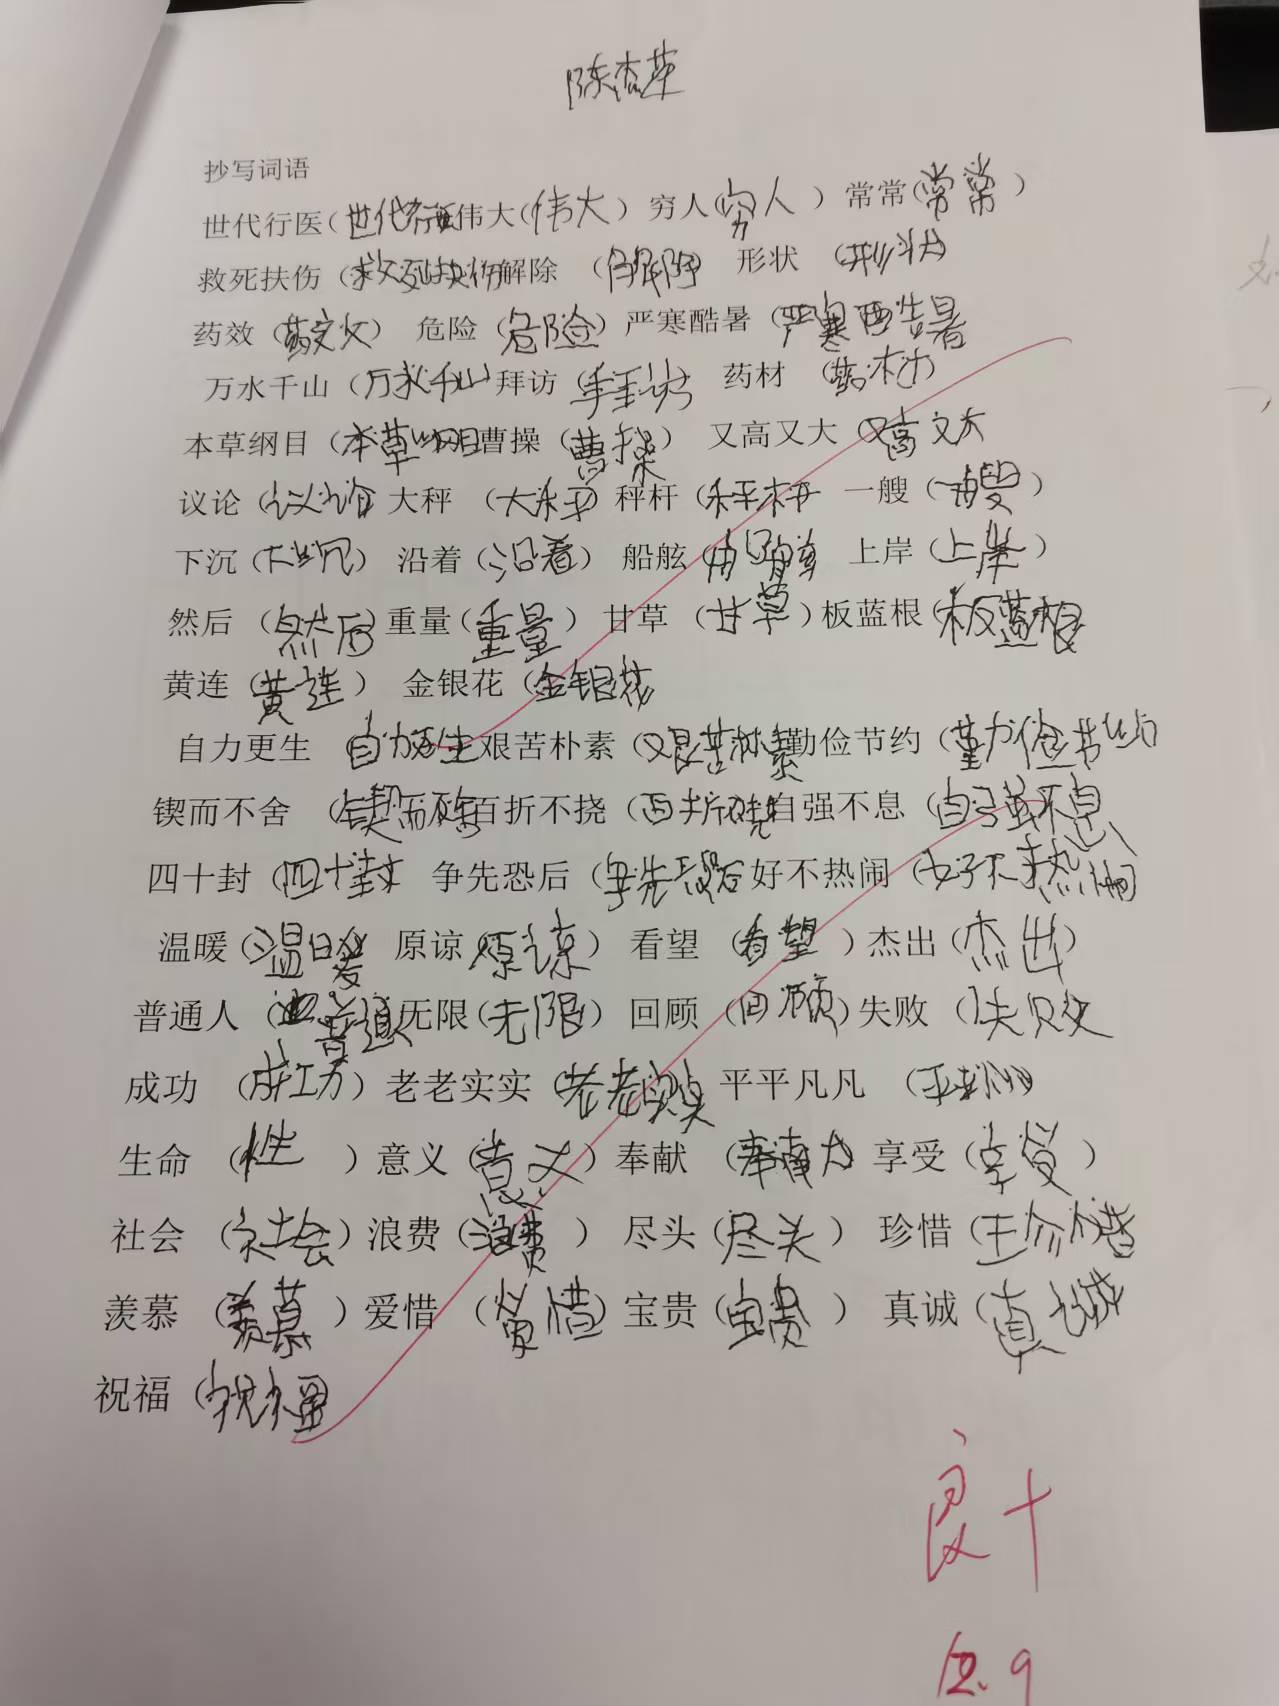 陈杏苹
抄写词语
世代行医(世代行医伟大(伟大) 穷人(穷人) 常常(常常)
救死扶伤(救死扶伤解除 (解除) 形状 (形状)
药效 (药效) 危险 (危险) 严寒酷暑 (严寒酷暑
万水千山 (万水千山)拜访 (拜访 药材 (药材)
本草纲目 (本草纲目曹操 (曹操) 又高又大 (又高又大
议论 (议论 大秤 (大秤) 秤杆 (秤杆 一艘 (一艘)
下沉 (下沉) 沿着 (沿着) 船舷 (船 上岸 (上岸)
然后 (然后) 重量 (重量) 甘草 (甘草) 板蓝根 (板蓝根
黄连 (黄连) 金银花 (金银花
自力更生 自力更生艰苦朴素 (艰苦朴素勤俭节约 (勤俭节约
锲而不舍 (锲而不舍百折不挠 (百折不挠自强不息 (自强不息
四十封 (四十封 争先恐后 (争先恐后好不热闹 (好不热闹
温暖 (温暖 原谅 原谅) 看望 (看望) 杰出 (杰出)
普通人 (普通人无限 (无限) 回顾 (回顾) 失败 (失败
成功 (成功) 老老实实 (老老实实 平平凡凡 (平平凡凡)
生命 (性 ) 意义 (意义) 奉献 (奉献) 享受 (享受)
社会 (社会) 浪费 (浪费) 尽头 (尽头) 珍惜 (珍惜
羡慕 (羡慕) 爱惜 (爱惜) 宝贵 (宝贵) 真诚 (真诚
祝福 (祝福
良+
12.9